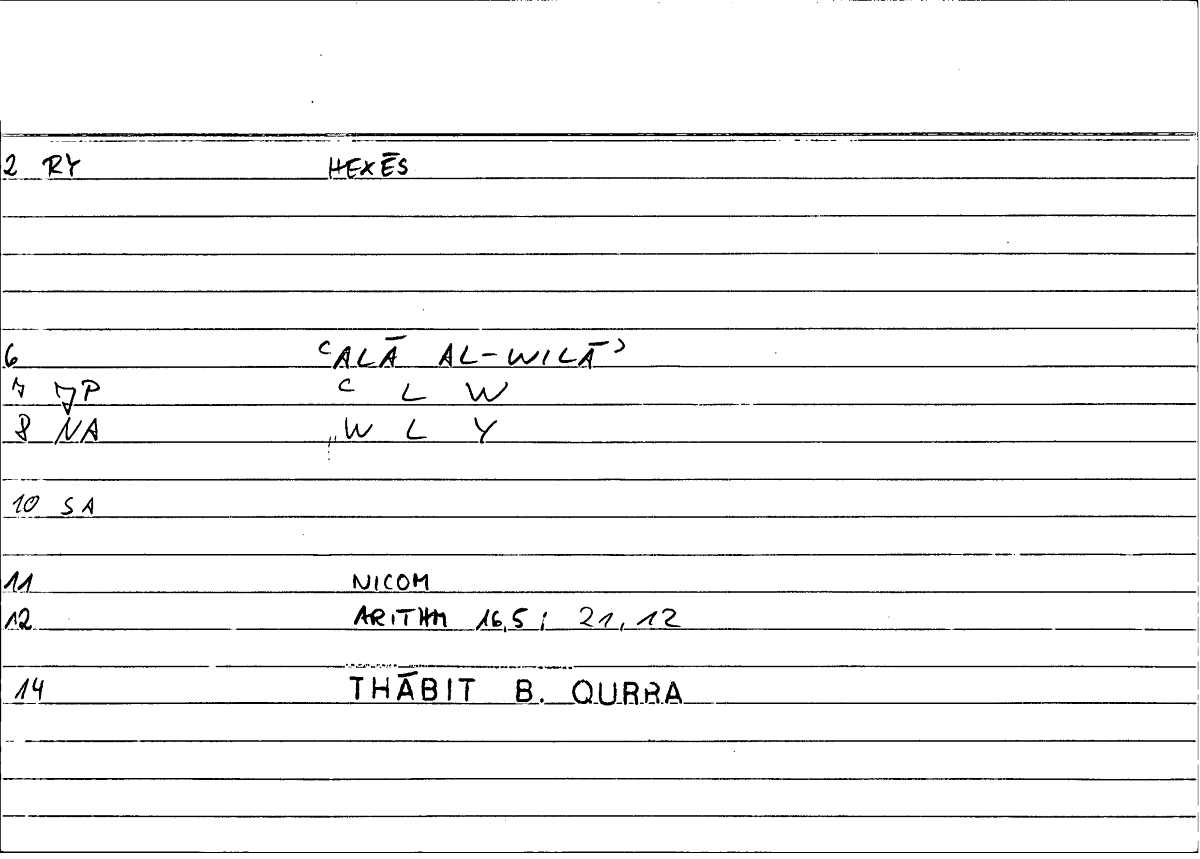 2 RY HEXĒS
6 ʿALĀ AL-WILĀʾ
7 JP ʿ L W
8 NA W L Y
10 SA
11 NICOM
12 ARITHM 16,5; 21,12
14 THĀBIT B. QURRA